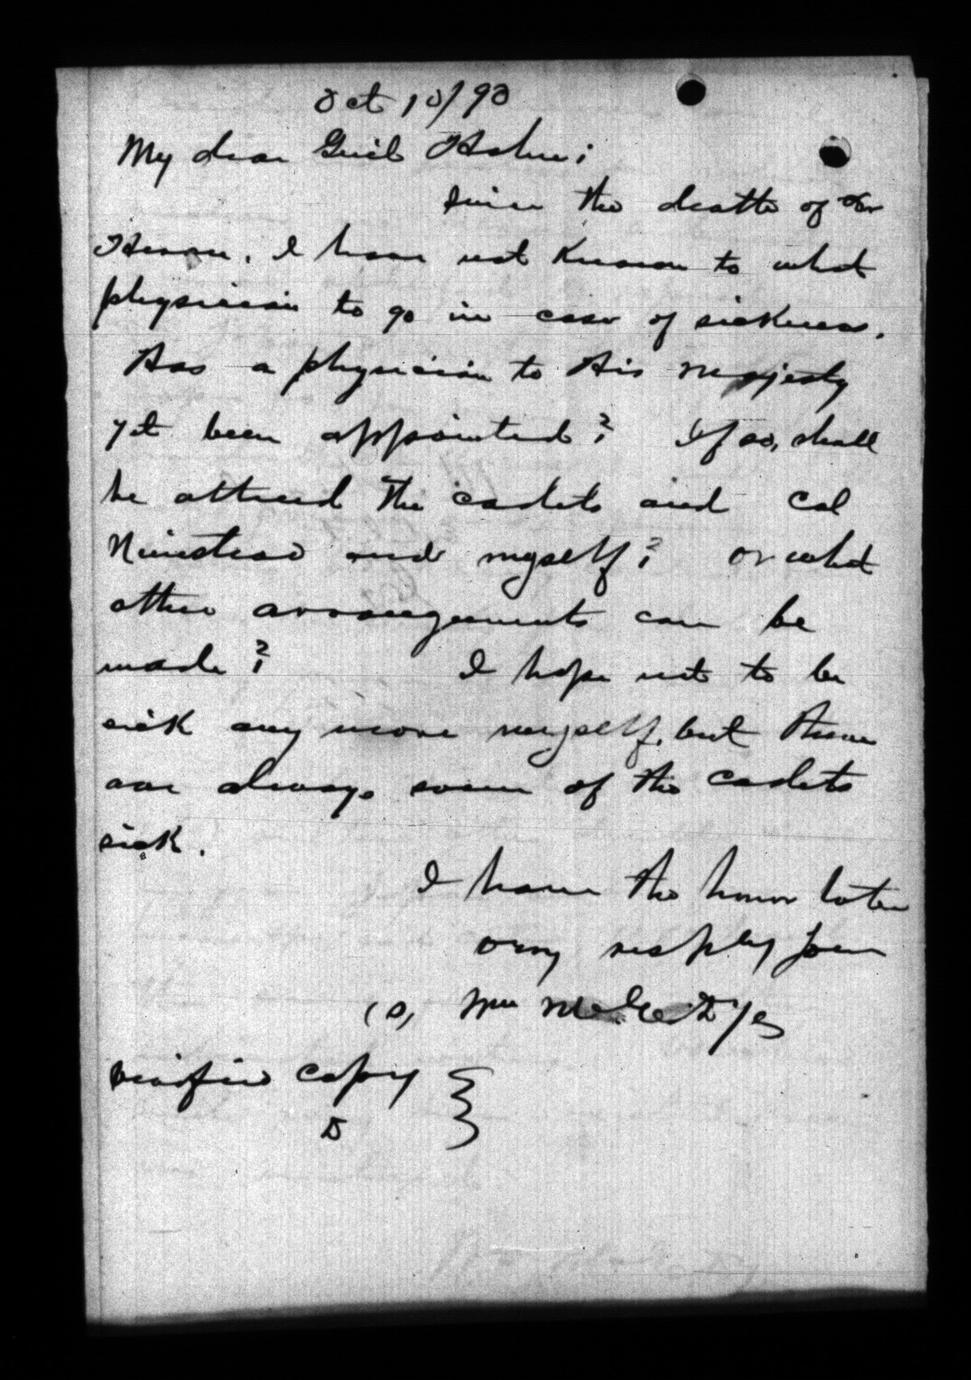 Oct 10/90
My dear Genl Hahn:
Since the death of Dr
Heron, I have not known to what
physician to go in case of sickness.
Has a physician to His Majesty
yet been appointed? If so, shall
he attend the cadets and Col
Nienstead and myself? or what
other arrangements can be
made? I hope not to be
sick any more myself, but there
are always some of the cadets
sick.
I have the honor to be
very respfly your
(S) Wm McE Dye
Verified copy
D